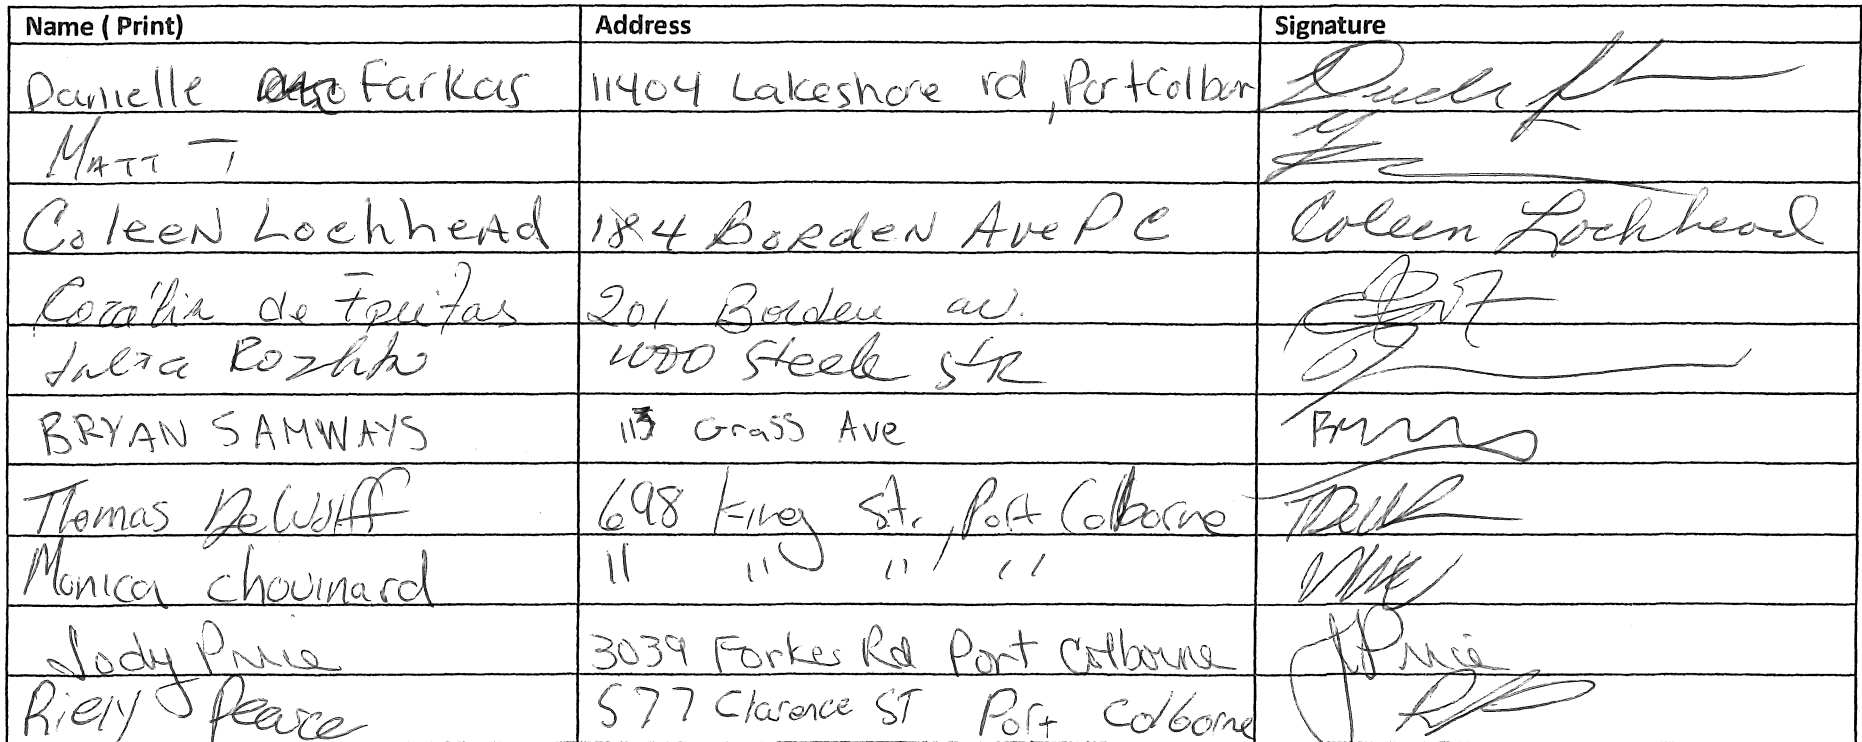 Name ( Print) Address Signature
Danielle Farkas 11404 Lakeshore rd, Port Colbor
MATT T
Coleen Lochhead 184 Borden Ave P C Coleen Lochhead
de Freitas 201 Borden av.
Julia Rozhko Steele str
BRYAN SAMWAYS 113 Grass Ave
Thomas DeWolff 698 King St., Port Colborne
Monica chouinard 11 11 11 / 11
Jody Price 3039 Forkes Rd Port Colborne J Price
Riely Pearce 577 Clarence ST Port Colborne